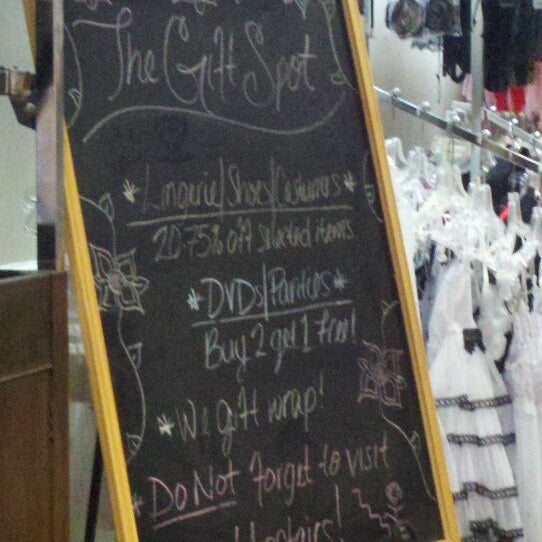 The Gift Spot
*Lingerie/Shoes/Costumes*
20-75% off selected items
*DVDs/Panties*
Buy 2 get 1 Free!
*We gift wrap!
*Do Not forget to visit
Upstairs!